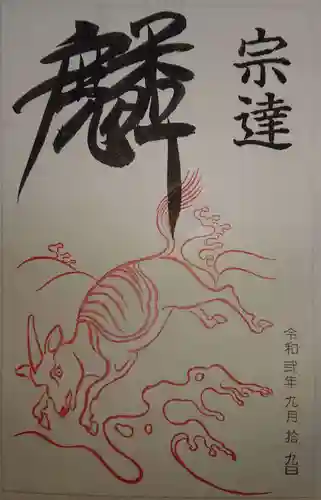 宗達
麟
令和弐年九月拾九日